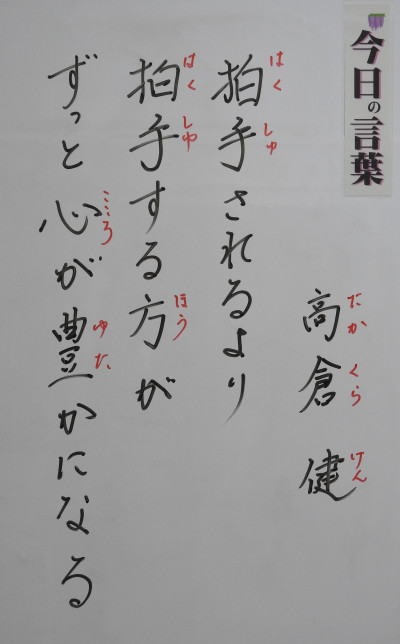 今日の言葉
高倉健
たかくらけん
拍手されるより
はくしゅ
拍手する方が
はくしゅ ほう
ずっと心が豊かになる
こころ ゆた